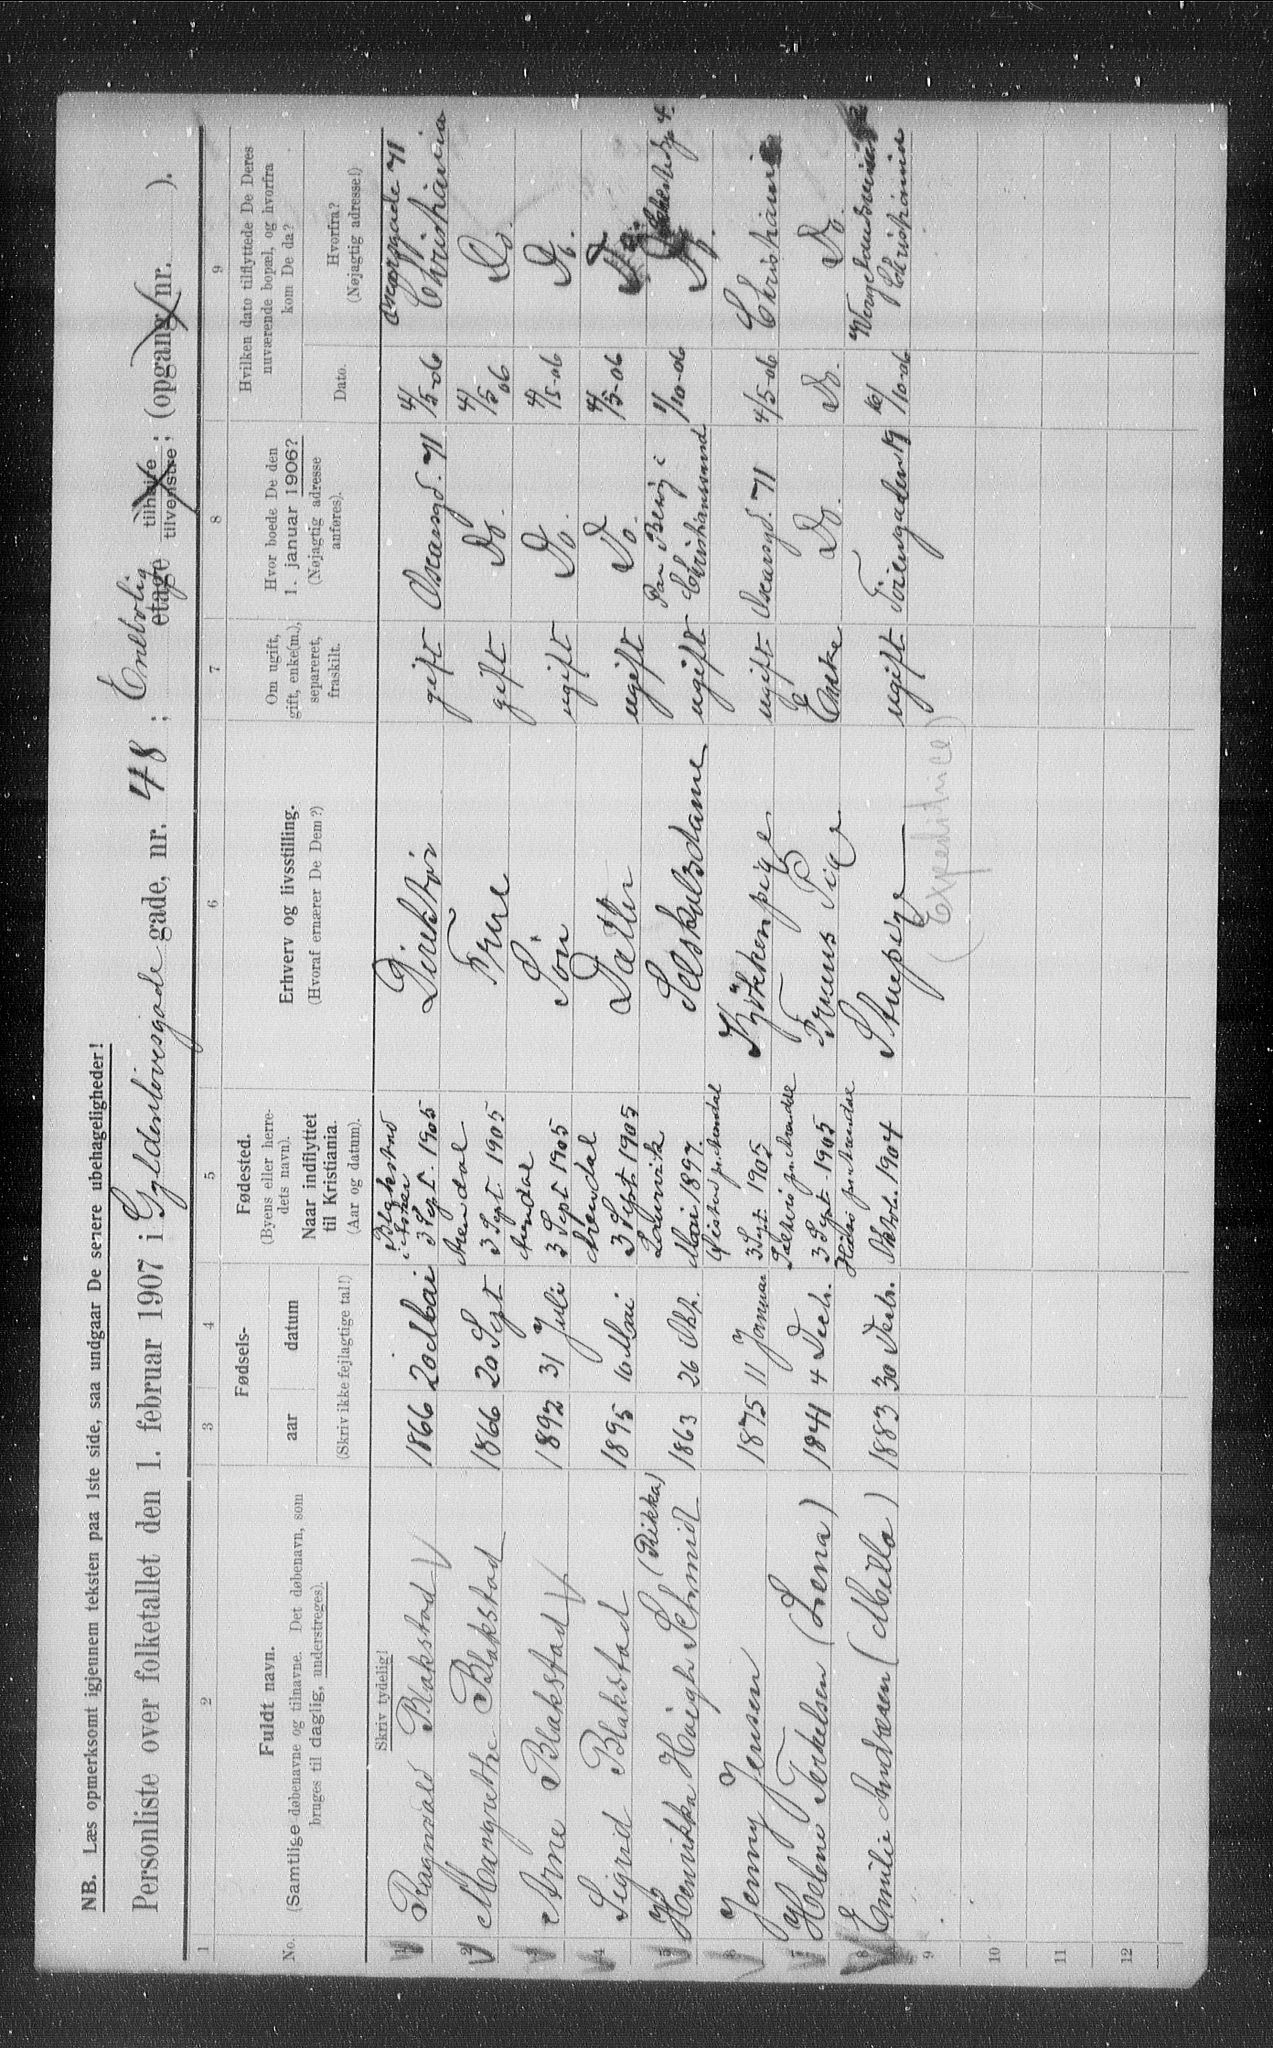 NB. Læs opmerksomt igjennem teksten paa 1ste side, saa undgaar De senere ubehageligheder!
Personliste over folketallet den 1. februar 1907 i Gyldenløvesgade gade, nr. 48; Enebolig etage tilhøire tilvenstre; (opgang nr. ).
1 2 3 4 5 6 7 8 9
No.
Fuldt navn.
(Samtlige døbenavne og tilnavne. Det døbenavn, som
bruges til daglig, understreges).
Skriv tydelig!
Fødsels-
aar datum
(Skriv ikke fejlagtige tal!)
Fødested.
(Byens eller herre-
dets navn).
Naar indflyttet
til Kristiania.
(Aar og datum).
Erhverv og livsstilling.
(Hvoraf ernærer De Dem?)
Om ugift,
gift, enke(m.),
separeret,
fraskilt.
Hvor boede De den
1. januar 1906?
(Nøjagtig adresse
anføres).
Hvilken dato tilflyttede De Deres
nuværende bopæl, og hvorfra
kom De da?
Dato.
Hvorfra?
(Nøjagtig adresse!)
1 Ragnvald Blakstad 1866 20 Mai Blakstad i Asker 3 Sept. 1905 Direktør gift Oscarsgd. 71 4/5-06 Oscarsgade 71 Christiania
2 Margrethe Blakstad 1866 20 Sept Arendal 3 Sept. 1905 Frue gift Do. 4/5 06 Do.
3 Arne Blakstad 1892 31 Juli Arendal 3 Sept 1905 Søn ugift Do. 4/5-06 Do.
4 Sigrid Blakstad 1895 6 Mai Arendal 3 Sept 1905 Datter ugift Do. 4/5-06 Do.
5 Henrikka Høigh Schmidt (Rikka) 1863 26 Okt. Laurvik Mai 1897. Selskabsdame ugift Paa Besøg i Christianssund 1/10-06
6 Jenny Jensen 1875 11 Januar pr. Arendal 3 Sept. 1905 Kjøkkenpige ugift Oscarsgd. 71 4/5-06 Christiania
7 Helene Terkelsen (Lena) 1841 4 Decb. pr. Arendal 3 Sept. 1905 Fruens Pige Enke Do. Do. Do.
8 Emilie Andresen (Milla) 1883 30 Decbr. pr. Arendal Oktbr. 1904 Stuepige ugift Torvgaden 19 1/10-06 Christiania
(Expeditrice)
9
10
11
12